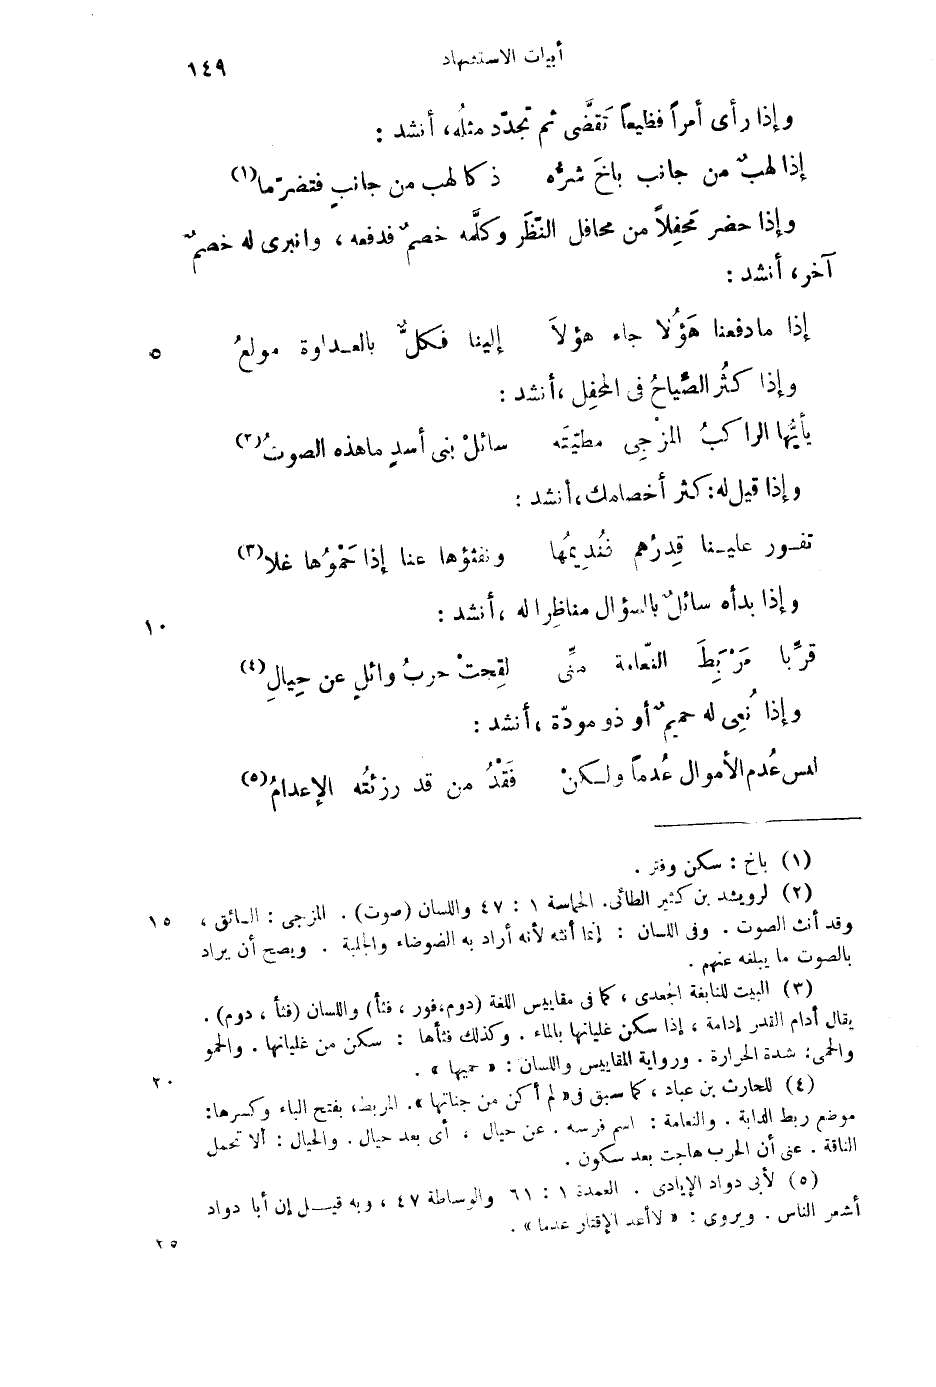 أبيات الاستشهاد ١٤٩
وإذا رأى أمراً فظيعاً تَقضَّى ثم تجدّد مثلُه، أنشد :
إذا لهبٌ من جانب باخَ شرُّه ذكا لهب من جانبٍ فتضرّما(١)
وإذا حضر مَحفِلاً من محافل النّظَر وكلَّمه خصمٌ فدفعه ، وانبرى له خصمٌ
آخر، أنشد :
إذا مادفعنا هَؤُلا جاء هؤلاَ إلينا فكلٌّ بالعداوة مولعُ ٥
وإذا كثُر الصِّياحُ فى المحفِل ،أنشد :
يأيُّها الراكبُ المزْجِى مطيّتَه سائلْ بنى أسدٍ ماهذه الصوتُ(٢)
وإذا قيل له: كثر أخصامك،أنشد :
تفور علينا قِدرُهم فنُدِيمُها ونفثؤها عنا إذا حَمْوُها غلا(٣)
وإذا بدأه سائلٌ بالسؤال مناظِرا له ،أنشد : ١٠
قرِّبا مَرْبِطَ النّعامة منِّى لقِحتْ حربُ وائلٍ عن حِيالِ(٤)
وإذا نُعِى له حميمٌ أو ذو مودّة ،أنشد :
ليس عُدم الأموال عُدماً ولكنْ فَقْدُ من قد رزئتُه الإعدامُ(٥)
(١) باخ : سكن وفتر .
(٢) لرويشد بن كثير الطائى. الحماسة ١ : ٤٧ واللسان (صوت) . المزجى : السائق ، ١٥
وقد أنث الصوت . وفى اللسان : إنما أنثه لأنه أراد به الضوضاء والجلبة . ويصح أن يراد
بالصوت ما يبلغه عنهم .
(٣) البيت للنابغة الجعدى ، كما فى مقاييس اللغة (دوم،فور ، فثأ) واللسان (فثأ ، دوم) .
يقال أدام القدر إدامة ، إذا سكن غليانها بالماء . وكذلك فثأها : سكن من غليانها . والحمو
والحمى: شدة الحرارة . ورواية المقاييس واللسان : « حميها » . ٢٠
(٤) للحارث بن عباد ، كما سبق فى« لم أكن من جناتها ». المربط، بفتح الباء وكسرها:
موضع ربط الدابة . والنعامة : اسم فرسه . عن حيال ، أى بعد حيال . والحيال : ألا تحمل
الناقة . عنى أن الحرب هاجت بعد سكون .
(٥) لأبى دواد الإيادى . العمدة ١ : ٦١ والوساطة ٤٧ ، وبه قيل إن أبا دواد
أشعر الناس . ويروى : « لاأعد الإقتار عدما » .
٢٥